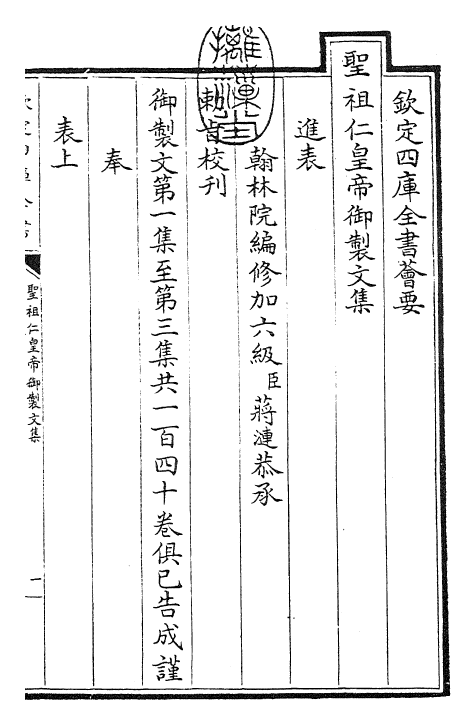 欽定四庫全書薈要
聖祖仁皇帝御製文集
進表
翰林院編修加六級臣蔣漣恭承
敕旨校刋
御製文第一集至第三集共一百四十卷俱已告成謹
奉
表上
聖祖仁皇帝御製文集
一